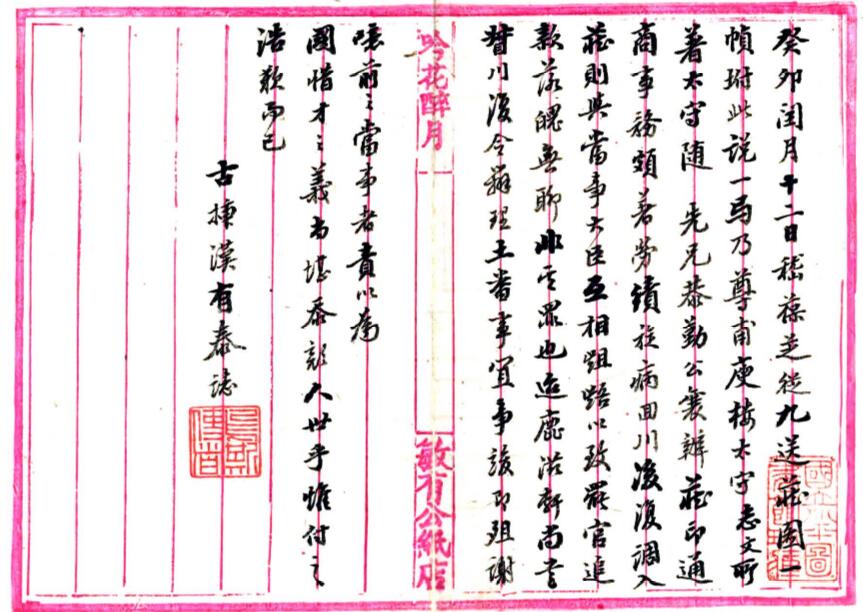 癸卯閏月十二日嵇葆芝從九送藏圖一
幀坿此說一 乃尊甫庾樓太守志文所
著太守隨 先兄恭勤公襄辦藏印通
商事務頗著勞績旋病回川後復調入
藏則與當事大臣互相齟齬以致罷官追
款落魄無聊非其罪也迨鹿滋軒尚書
督川復令辦理土番事宜事竣即殂謝
吟花醉月
敏有公紙店
噫前之當事者責以為
國惜才之義尚堪忝顏人世乎惟付之
浩歎而已
古摶漢有泰誌